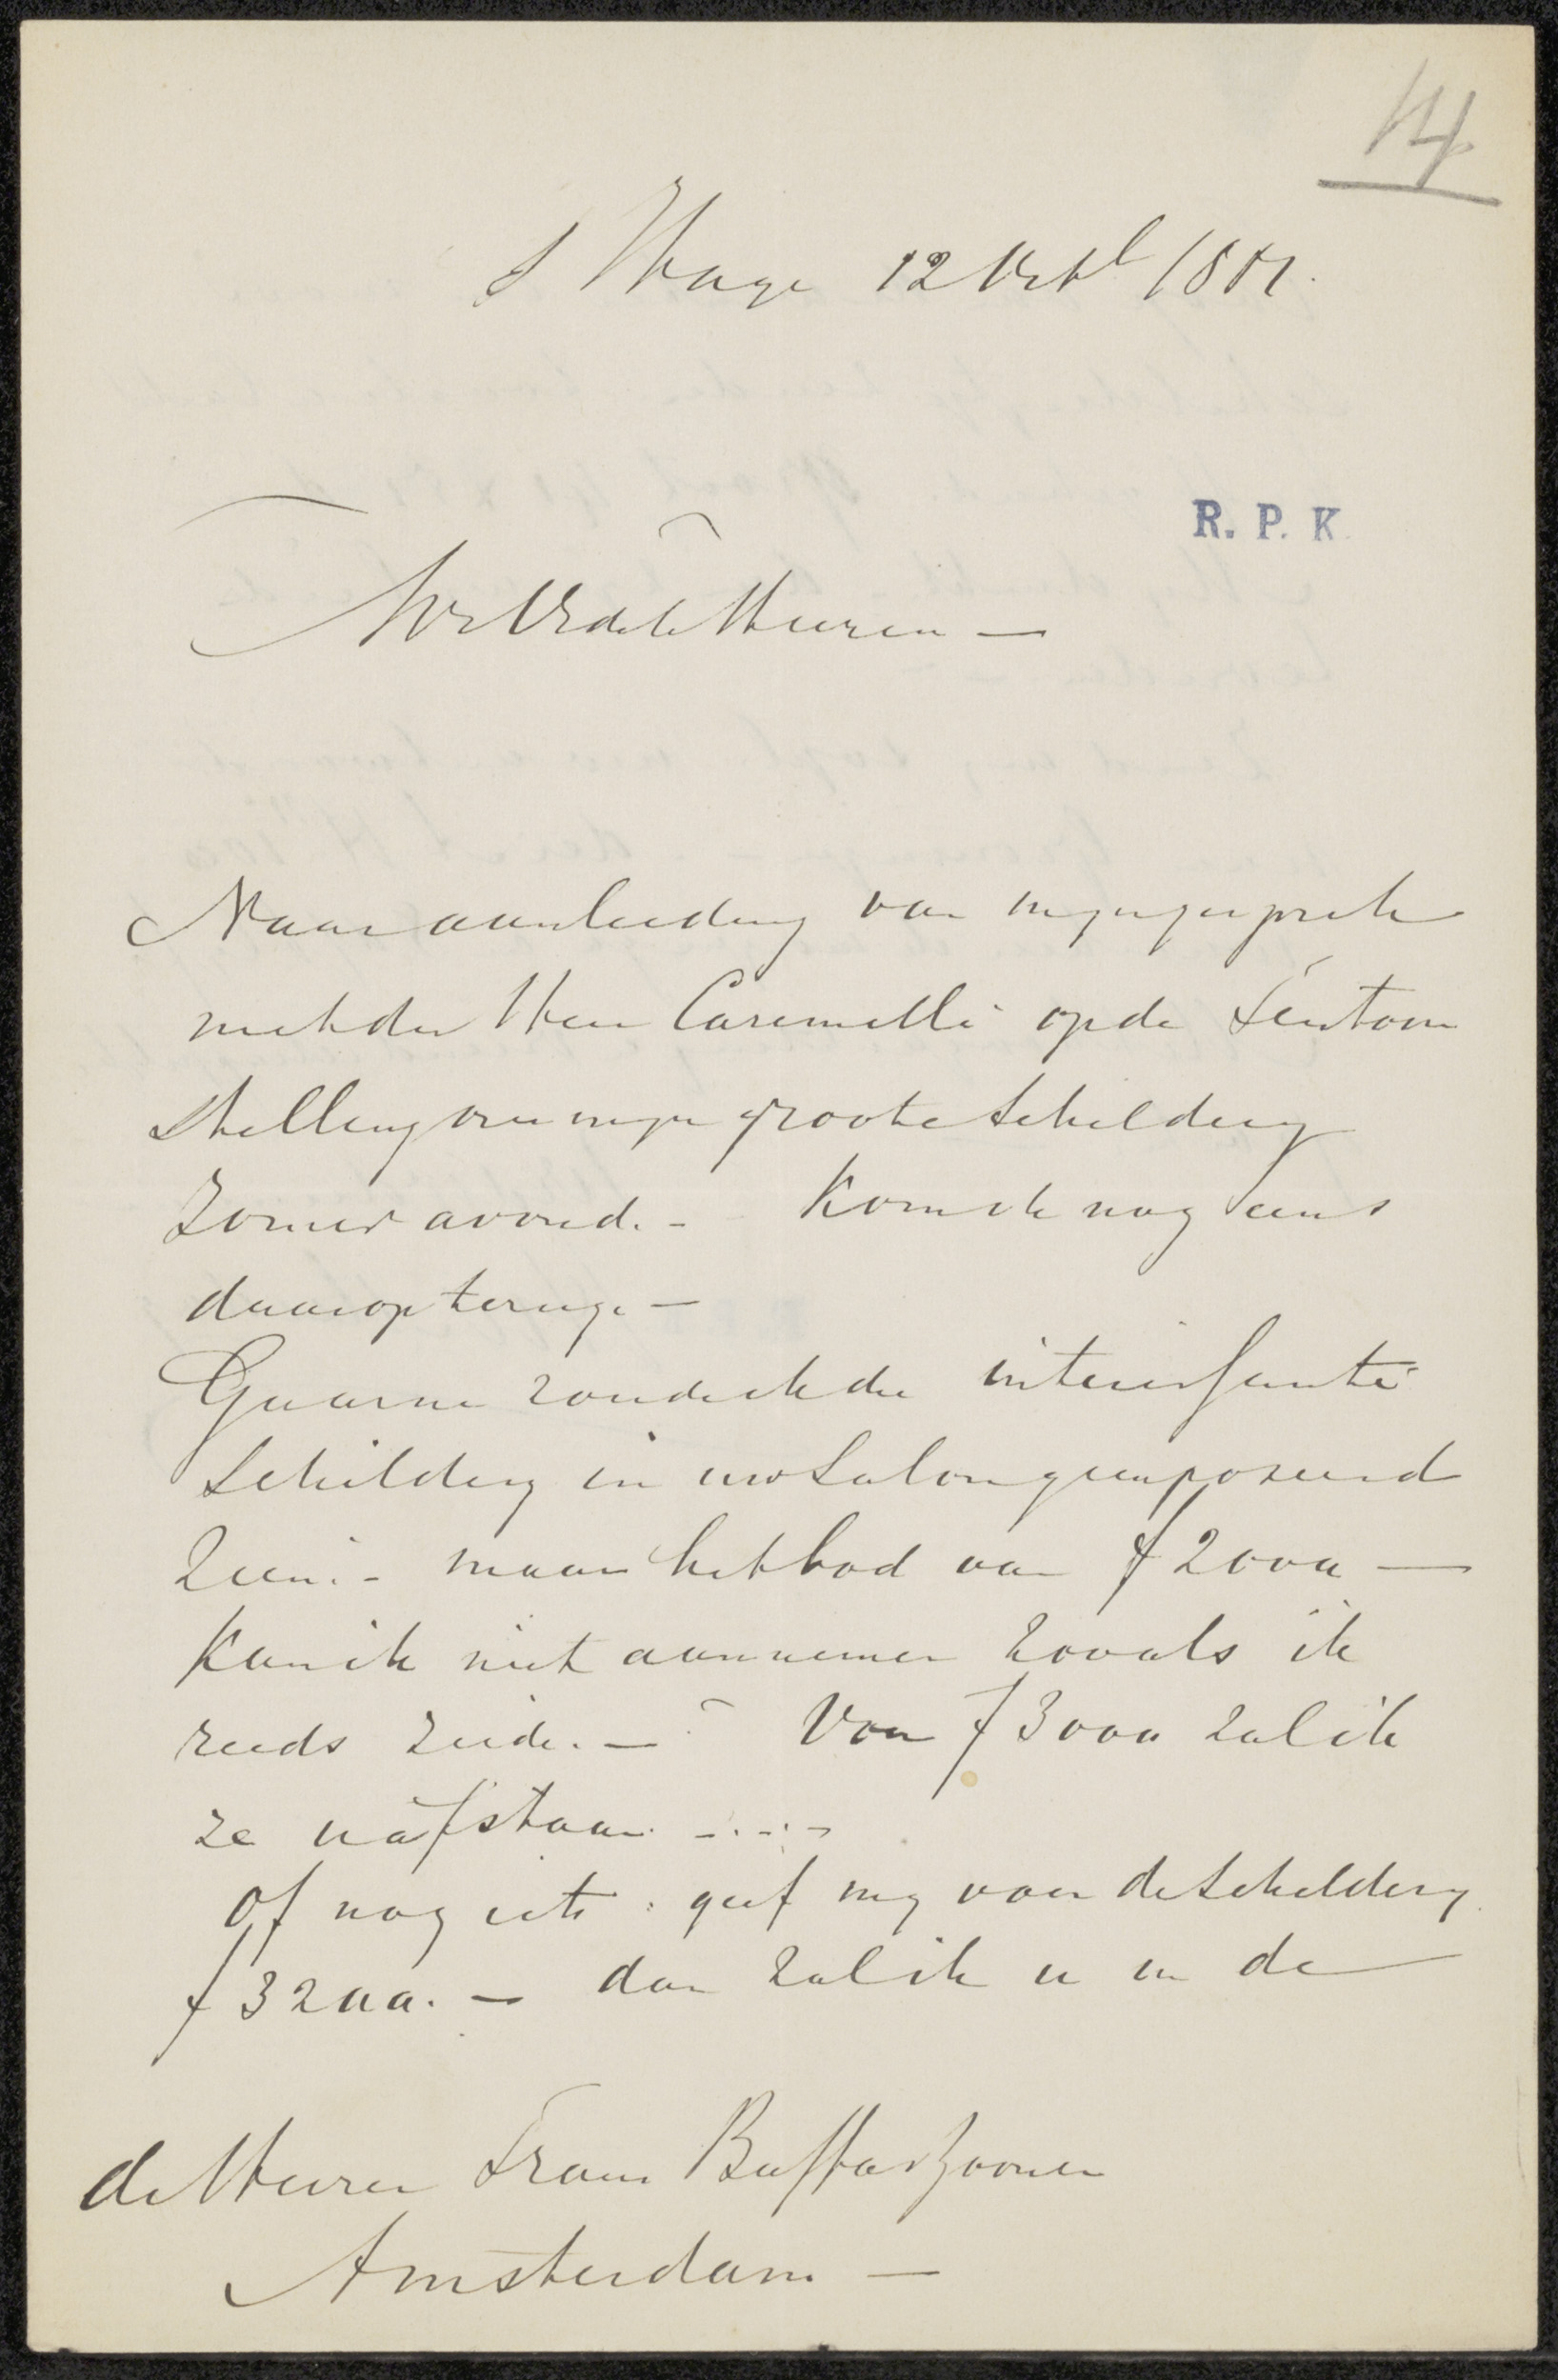 14
s Hage 12 Octb 18
R. P. K.
WelEdele Heeren —
Naar aanleiding van mijn gesprek
met den Heer Caramelli op de tentoon
stelling over mijn groote schildery
Zomer avond. - Kom ik nog eens
daarop terug. —
Gaarne zoude ik die interessante
schildery in uw Salon geexposeerd
zien. - maar het bod van f 2000 —
kan ik niet aannemen zooals ik
reeds zeide. — Voor f 3000 zal ik
ze u afstaan. - . - . -
Of nog iets : geef my voor de schildery
f 3200. — dan zal ik u in de
de Heeren Frans Buffa & Zoonen
Amsterdam —